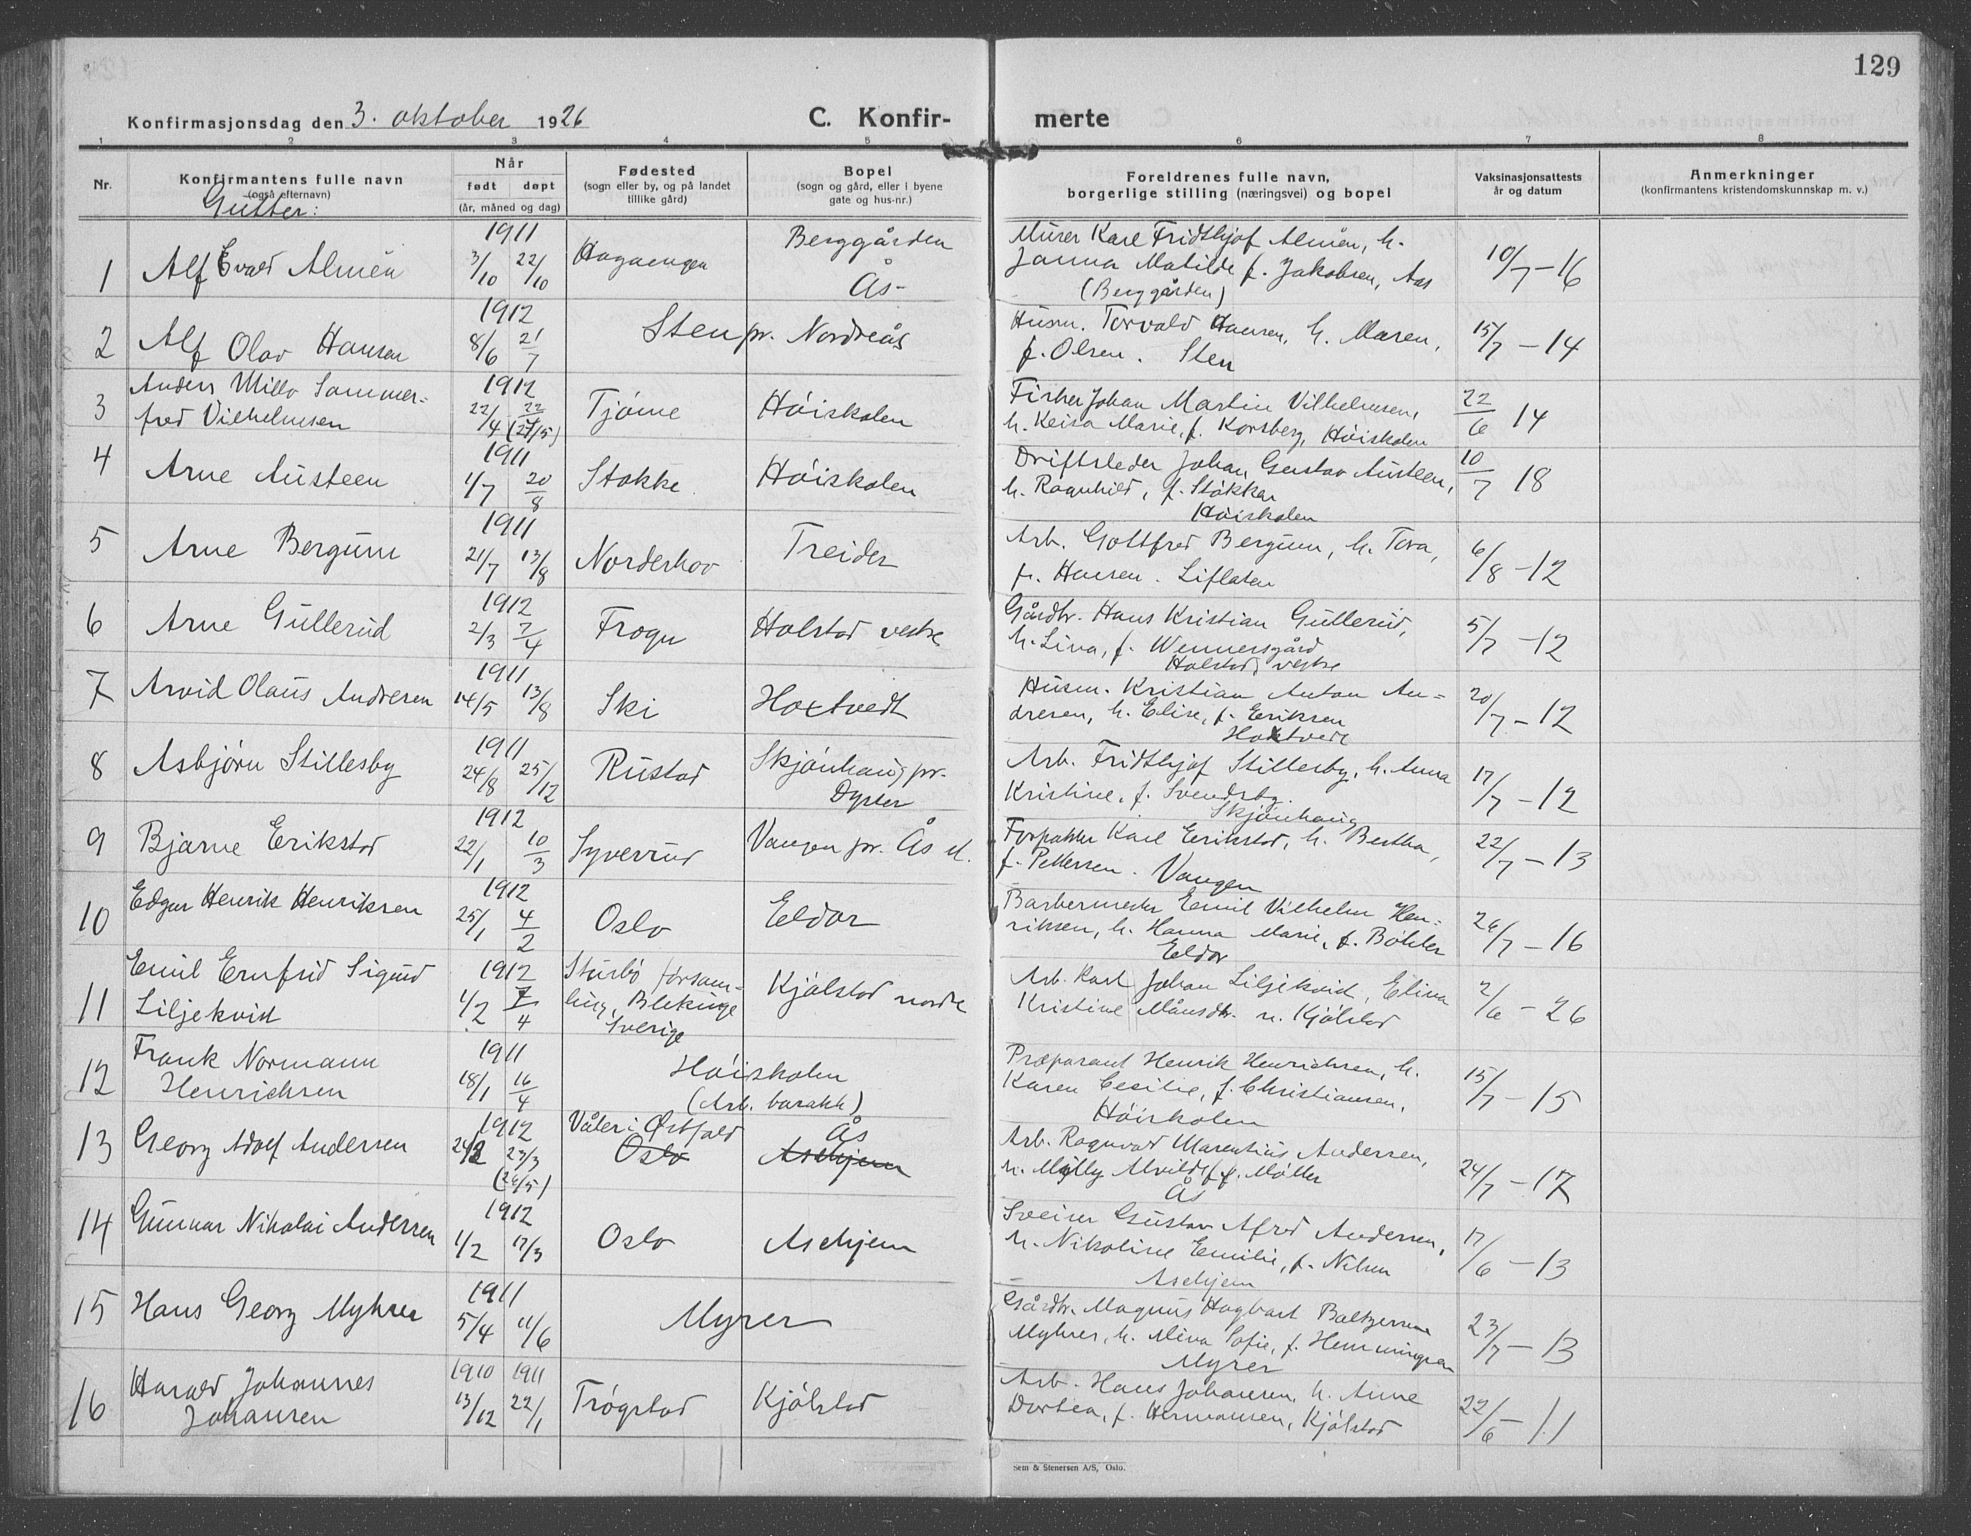 129
Konfirmasjonsdag den 3. oktober 1926
C. Konfir- merte
1 2 3 4 5 6 7 8
Nr.
Konfirmantens fulle navn
(også efternavn)
Gutter:
Når
født døpt
(år, måned og dag)
Fødested
(sogn eller by, og på landet
tillike gård)
Bopel
(sogn og gård, eller i byene
gate og hus-nr.)
Foreldrenes fulle navn,
borgerlige stilling (næringsvei) og bopel
Vaksinasjonsattests
år og datum
Anmerkninger
(konfirmantens kristendomskunnskap m. v.)
1 Alf Evald Almén
1911
3/10 22/10
Hagaengen
Berggården
Ås
Murer Karl Fridthjof Almén, h.
Janna Matilde f. Jakobsen, Aas
(Berggården)
10/7 – 16
2 Alf Olav Hansen
1912
8/6 21/7
Sten pr. Nordreås
Husm. Torvald Hansen, h. Maren,
f. Olsen. Sten
15/7 – 14
3 Anders Millo Sommer-
fred Vilhelmsen
1912
22/4 22/4 (27/5)
Tjøme
Høiskolen
Fisker Johan Martin Vilhelmsen,
h. Keisa Marie, f. Korsberg, Høiskolen
22/6 14
4 Arne Austeen
1911
1/7 20/8
Stokke
Høiskolen
Driftsleder Johan Gustav Austeen,
h. Ragnhild, f. Stokkar
Høiskolen
10/7 18
5 Arne Bergum
1911
21/7 13/8
Norderhov
Treider
Arb. Gottfred Bergum, h. Tora,
f. Hansen. Liflaten
6/8 – 12
6 Arne Gullerud
1912
2/3 7/4
Frogn
Holstad vestre
Gårdbr. Hans Kristian Gullerud,
h. Lina, f. Wennersgård
Holstad vestre
5/7 – 12
7 Arvid Olaus Andresen
1911
14/5 13/8
Ski
Hoxtvedt
Husm. Kristian Anton An-
dresen, h. Elise, f. Eriksen
Hoxtvedt
20/7 – 12
8 Asbjørn Stillesby
1911
24/8 25/12
Rustad
Skjønhaug pr.
Dyster
Arb. Fridthjof Stillesby, h. Anna
Kristine, f. Svendsby.
Skjønhaug
17/7 – 12
9 Bjarne Eerikstad
1912
22/1 10/3
Syverud
Vangen pr. Ås st.
Forpakter Karl Eerikstad, h. Bertha,
f. Pettersen. Vangen
22/7 – 13
10 Edgar Henrik Henriksen
1912
25/1 4/2
Oslo
Eldor
Barbermester Emil Vilhelm Hen-
riksen, h. Hanna Marie, f. Böhler
Eldor
26/7 – 16
11 Emil Ernfrid Sigurd
Liljekvist
1912
1/2 7/4
Sturkö forsam-
ling, Blekinge
Sverige
Kjølstad nordre
Arb. Karl Johan Liljekvist, Elina
Kristine Månsdtr. n. Kjølstad
2/6 – 26
12 Frank Normann
Henrichsen
1911
18/1 16/4
Høiskolen
(Arb. barakk)
Præparant Henrik Henrichsen, h.
Karen Cecilie, f. Christiansen,
Høiskolen
15/7 – 15
13 Georg Adolf Andersen
1912
24/2 23/3
(26/5)
Våler i Østfold
Oslo
Ås
Aschjem
Arb. Ragnvald Marentius Andersen,
h. Milly Alvilde f. Møller
Ås
24/7 – 17
14 Gunnar Nikolai Andersen
1912
1/2 17/3
Oslo
Aschjem
Sveiser Gustav Alfred Andersen,
h. Nikoline Emilie, f. Nilsen
Aschjem
17/6 – 13
15 Hans Georg Myhrer
1911
5/4 11/6
Myrer
Gårdbr. Magnus Hagbart Baltzersen
Myhrer, h. Alina Sofie, f. Hemmingsen
Myrer
23/7 – 13
16 Harald Johannes
Johansen
1910 1911
13/12 22/1
Trøgstad
Kjølstad
Arb. Hans Johansen, h. Anne
Dortea, f. Hermansen, Kjølstad
22/6 – 11
Sem & Stenersen A/S, Oslo.